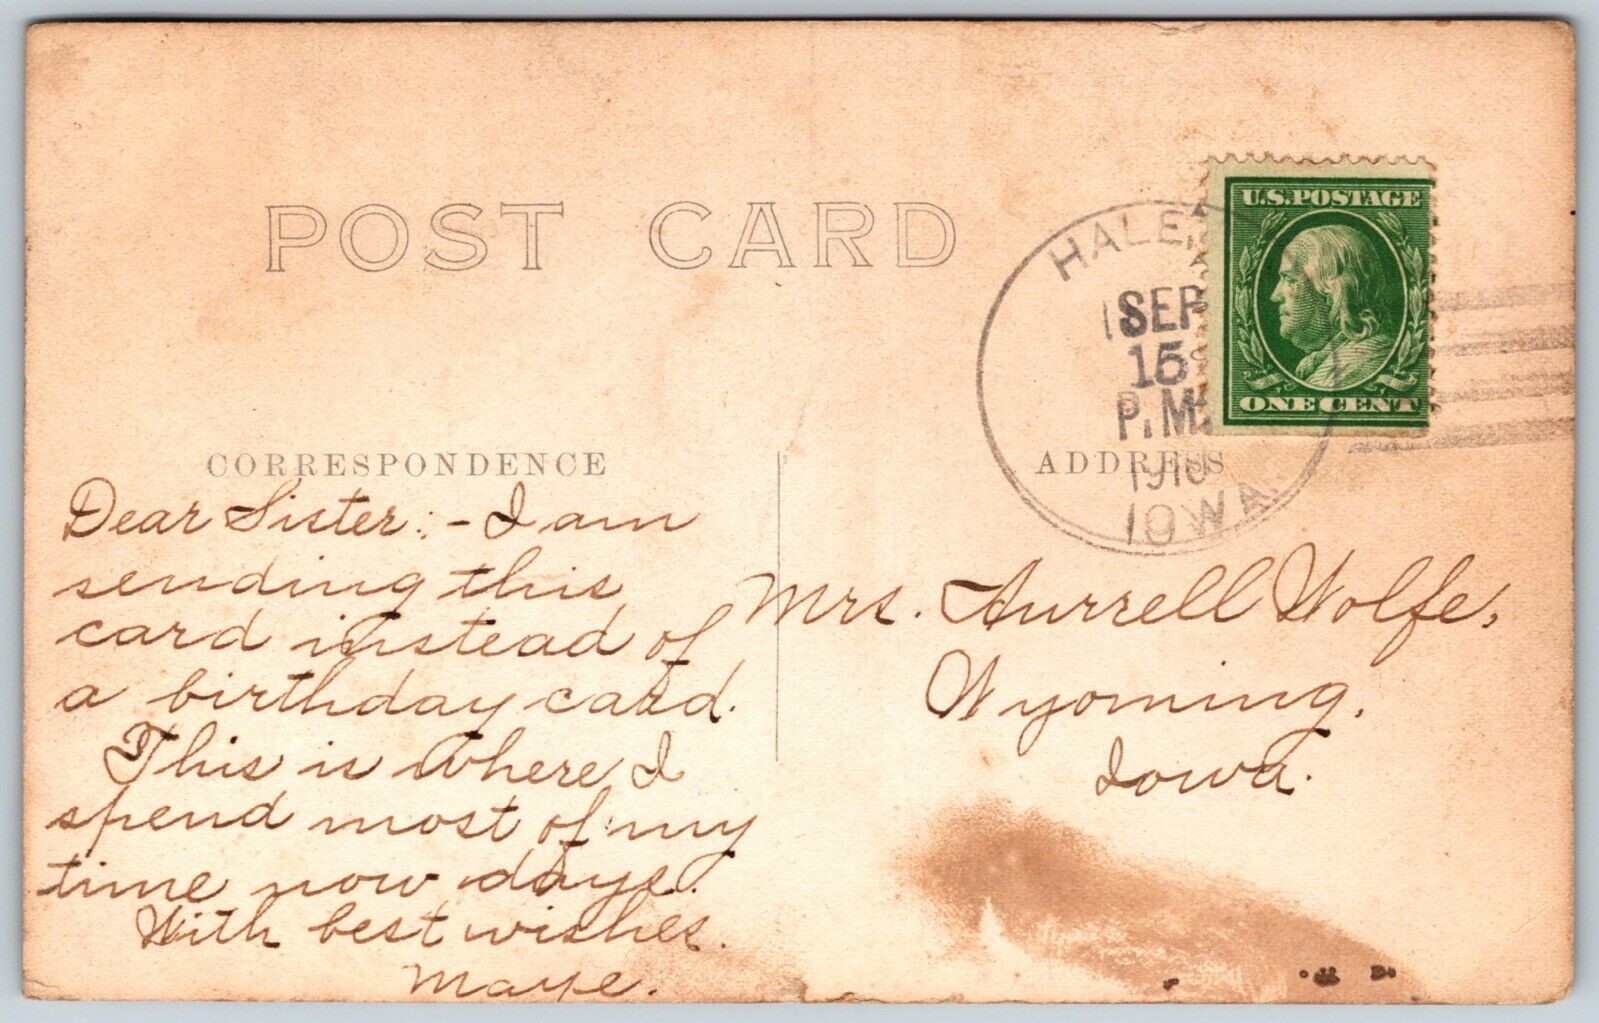 POST CARD
U.S. POSTAGE
ONE CENT
HALE,
SEP
15
P.M.
1910
IOWA.
CORRESPONDENCE
ADDRESS
Dear Sister:- I am
sending this
card instead of
a birthday card.
This is where I
spend most of my
time now days.
With best wishes.
Maye.
Mrs. Aurrell Wolfe,
Wyoming,
Iowa.